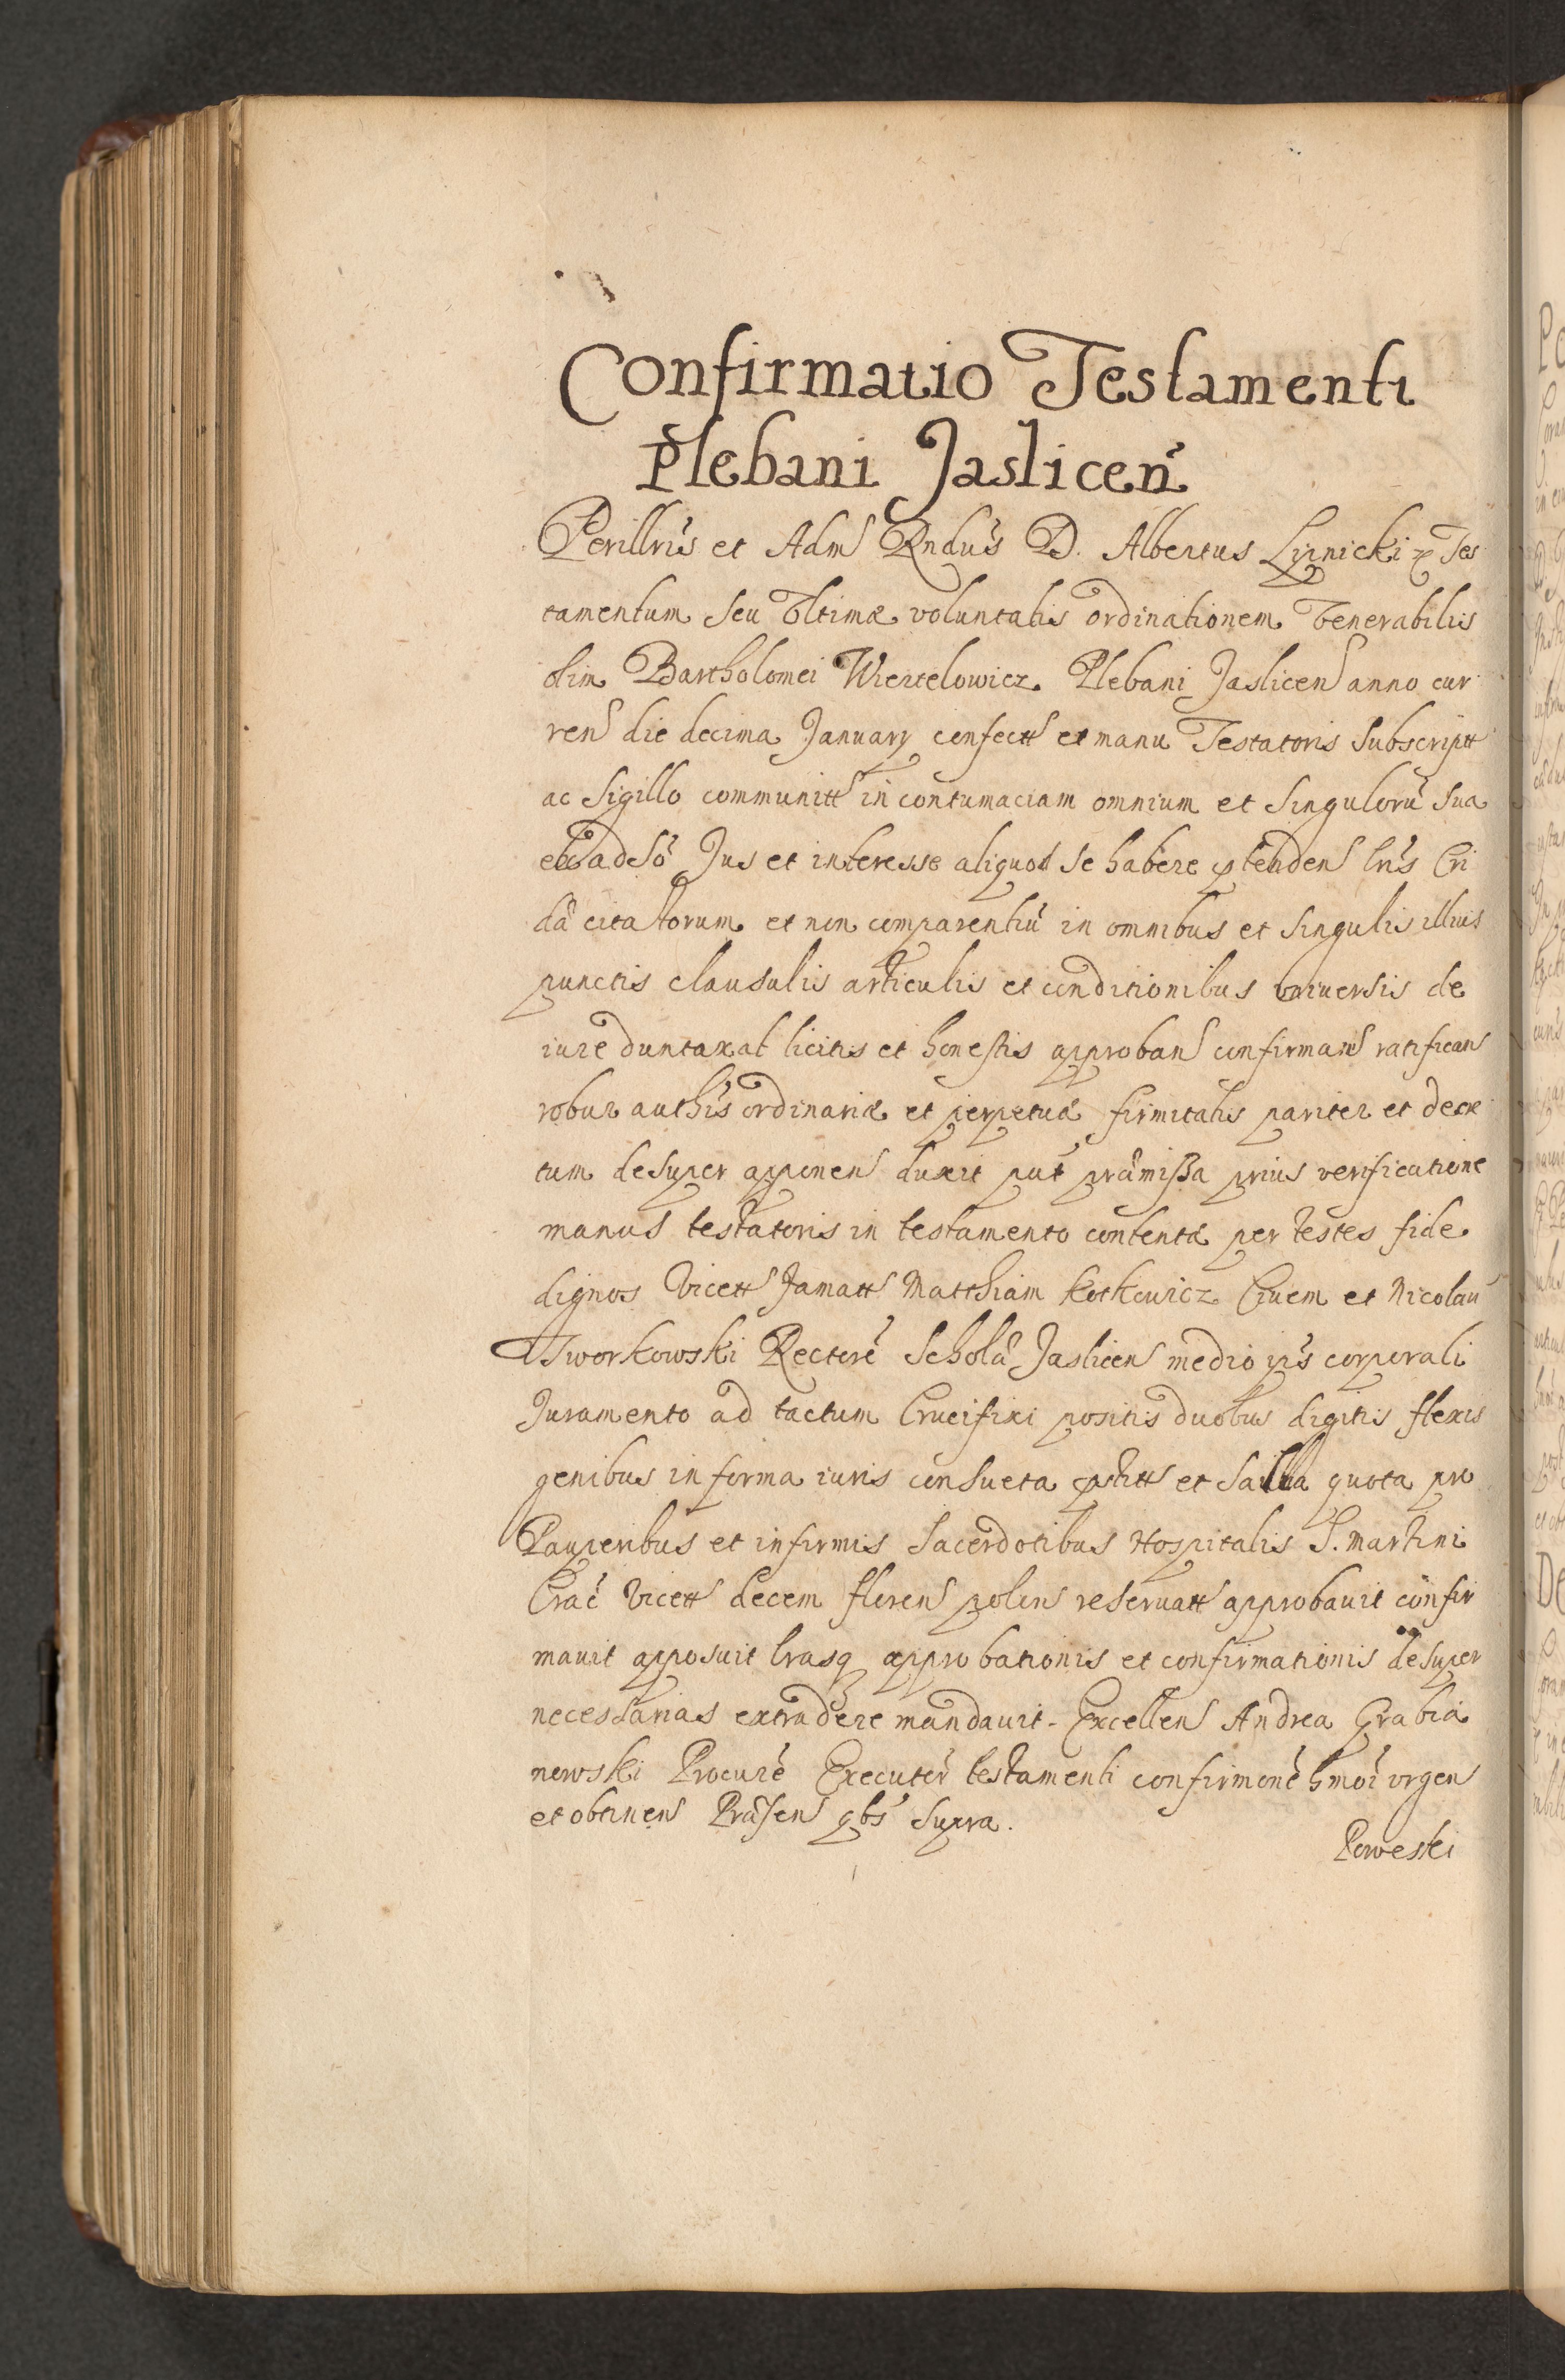 Confirmatio Testamenti
Plebani Jaslicen̄
Perillr̄is et Adm̄ Rndūs D. Albertus Lipnicki Tes
tamentum seu Vltimæ voluntatis ordinationem Venerabilis
olim Bartholomei Wiertelowicz Plebani Jaslicen anno cur
ren die decima January confectt et manu Testatoris Subscriptt
ac Sigillo communitt in contumaciam omnium et Singulorū Sua
Jus et interesse aliquod se habere ptenden lrīs Cri
dā citatorum et non comparentiū in omnibus et Singulis illius
punctis clausulis articulis et conditionibus vniuersis de
iure duntaxat licitis et honestis approban confirman ratifican
robur authīs ordinariæ et perpetuæ firmitatis pariter et decre
tum desuper apponen duxit put præmissa prius verificatione
manus testatoris in testamento contentæ per testes fide
dignos Vicett famatt Matthiam Kotkowicz Ciuem et Nicolaū
Tworkowski Rectorē Scholæ Jaslicen medio ipīs corporali
Juramento ad tactum Crucifixi positis duobus digitis flexis
genibus in forma iuris consueta pstitt et salua quota pro
Pauperibus et infirmis Sacerdotibus Hospitalis S. Martini
Crac̄ Vicett decem floren polon reseruatt approbauit confir
mauit apposuit lrasq approbationis et confirmationis desuper
necessarias extradere mandauit. Excellen Andrea Grabia
nowski Procurē Executor̄ testamenti confirmonē hmōi vrgen
et obtinen Præsen qbs supra.
Powęski